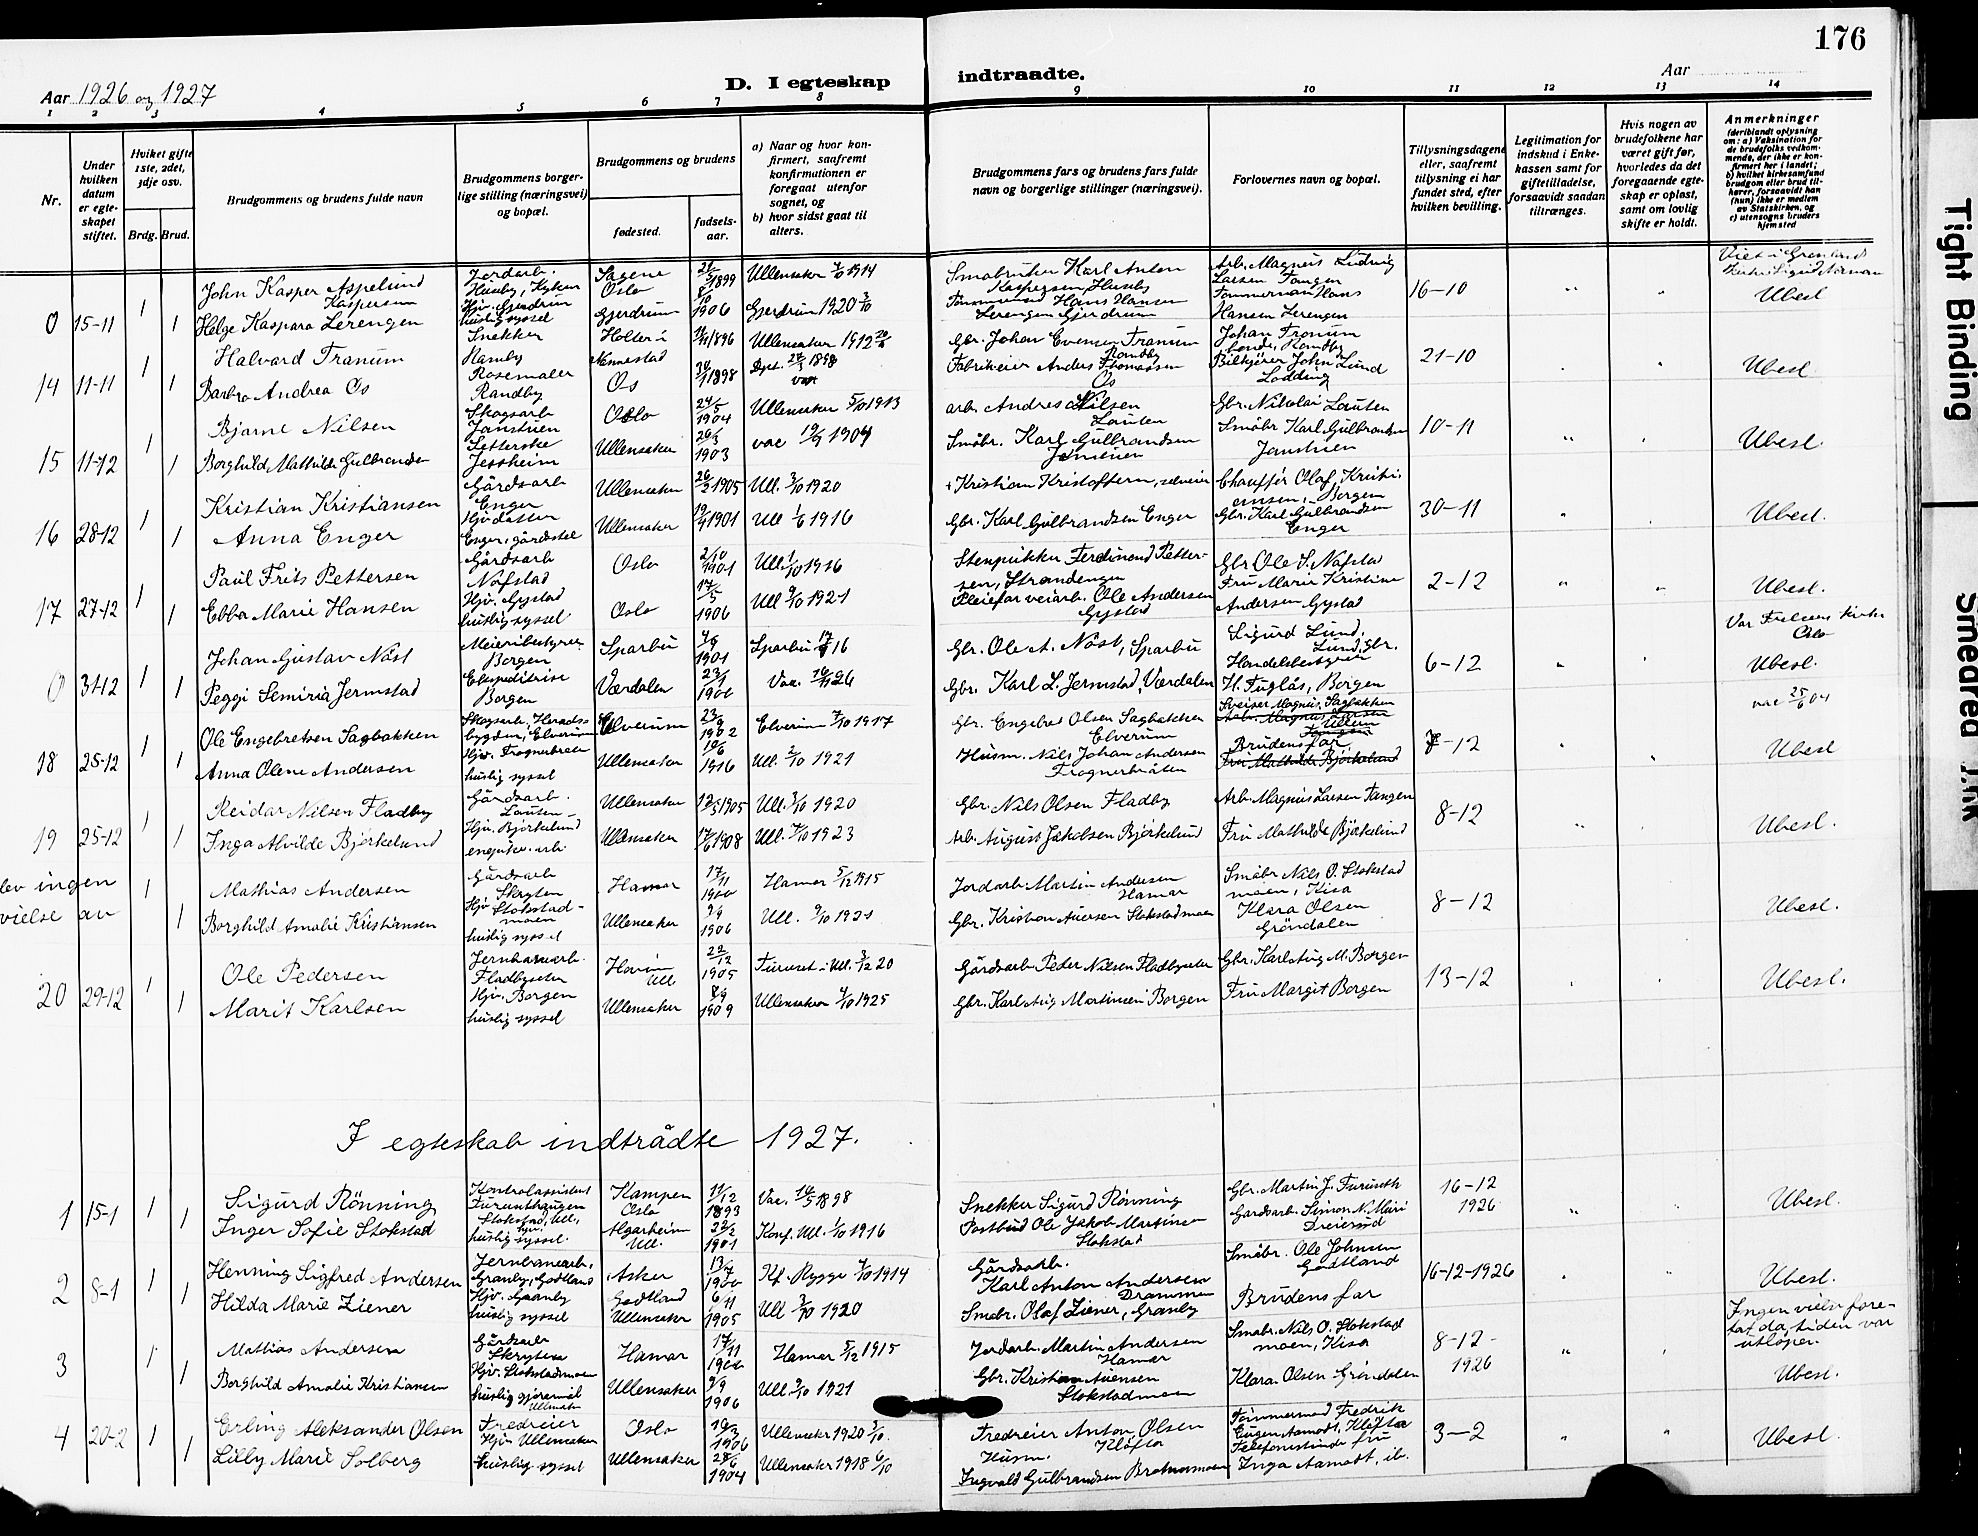 176
Aar 1926 og 1927
D. I egteskap
indtraadte.
Aar
1 2 3 4 5 6 7 8 9 10 11 12 13 14
Nr.
Under hvilken datum er egteskapet stiftet.
Hviket gifte 1ste, 2det, 3dje osv.
Brdg. Brud.
Brudgommens og brudens fulde navn
Brudgommens borgerlige stilling (næringsvei) og bopæl.
Brudgommens og brudens
fødested.
fødselsaar.
a) Naar og hvor konfirmert, saafremt konfirmationen er foregaat utenfor sognet, og
b) hvor sidst gaat til alters.
Brudgommens fars og brudens fars fulde navn og borgerlige stillinger (næringsvei).
Forlovernes navn og bopæl.
Tillysningsdagene eller, saafremt tillysning ei har fundet sted, efter hvilken bevilling.
Legitimation for indskud i Enkekassen samt for giftetilladelse, forsaavidt saadan tiltrænges.
Hvis nogen av brudefolkene har været gift før, hvorledes da det foregaaende egteskap er opløst, samt om lovlig skifte er holdt.
Anmerkninger
(deriblandt oplysning om: a) Vaksination for de brudefolks vedkommende, der ikke er konfirmert her i landet; b) hvilket kirkesamfund brudgom eller brud tilhører, forsaavidt han (hun) ikke er medlem av Statskirken, og c) utensogns bruders hjemsted
0 15-11 1 1
John Kasper Aspelund Kaspersen
Helge Kaspara Lerengen
Jordarb. Huseby, Kykon
Hjv. Gjerdrum huslig syssel
Sagene Oslo
Gjerdrum
1899
1906
Ullensaker 1914
Gjerdrum 1920
Småbruker Karl Anton Kaspersen Huseby
Tømmermand Hans Hansen Lerengen Gjerdrum
Arb. Magnus Ludvig Larsen Tangen
Tømmerman Hans Hansen Lerengen
16-10
Ubesl
14 11-11 1 1
Halvard Tranum
Barbro Andrea Os
Snekker
Rosemaler Randby
Holter i Nannestad
Os
1896
1898
Ullensaker 1912
Dpt. 1898
Gbr. Johan Evensen Tranum Randby
Fabrikeier Anders Thomassen Os
Johan Tronum
Bilkjører John Lund
21-10
Ubesl
15 11-12 1 1
Bjarne Nilsen
Borghild Mathilde Gulbrandsen
Skogsarb Janstuen
Jessheim
Oslo
Ullensaker
24/5 1904
26/3 1903
Ullensaker 5/10 1913
vac 19/9 1904
arb. Andres Nilsen Lauten
Småbr. Karl Gulbrandsen
Gbr. Nikolai Lauten
Småbr Karl Gulbrandsen Janstuen
10-11
Ubesl.
16 28-12 1 1
Kristian Kristiansen
Anna Enger
Gårdsarb Enger
Enger, gårdstel
Ullensaker
Ullensaker
26/2 1905
19/4 1901
Ull. 3/10 1920
Ull 1/6 1916
+ Kristian Kristoffersen, selveier
Gbr. Karl Gulbrandsen Enger
Chauffør Olaf Kristiansen, Borgen
Gbr. Karl Gulbrandsen Enger
30-11
Ubesl.
17 27-12 1 1
Paul Frits Pettersen
Ebba Marie Hansen
Gårdsarb Nafstad
Hjv. Gystad huslig syssel
Oslo
Oslo
2/10 1901
17/5 1906
Ull. 1/10 1916
Ull 9/10 1921
Stenpukker Ferdinand Pettersen, Strandengen
Pleiefar veiarb. Ole Andersen Gystad
Gbr Ole S. Nafstad
Fru Marie Kristine Andersen Gystad
2-12
Ubesl.
0 31-12 1 1
Johan Gustav Nøst
Peggi Semiria Jermstad
Meieribestyrer Borgen
Ekspeditrise Borgen
Sparbu
Værdalen
1901
Sparbu 16
Vac. 26
Gbr. Ole A. Nøst, Sparbu
Gbr. Karl L. Jermstad, Værdalen
Sigurd Lund,
Handelsbestyrer
H. Fuglås, Borgen
6-12
Vor Frelsers kirke Oslo
Ubesl.
vac 25/6 04
18 25-12 1 1
Ole Engebretsen Sagbakken
Anna Olene Andersen
Skogsarb, Heradsbygden, Elverum
huslig syssel
Elverum
Ullensaker
1902
Elverum 1917
Ull. 2/10 1921
Gbr. Engebret Olsen Sagbakken Elverum
Husm. Nils Johan Andersen Frognerbråten
Sveiser Magnus Sagbakken
Brudens far
Fru Mathilde Bjørkelund
7-12
Ubesl
19 25-12 1 1
Reidar Nilsen Fladby
Inga Alvilde Bjørkelund
Gårdsarb. Lauten
Hjv. Bjørkelund
Ullensaker
Ullensaker
1905
1908
Ull. 3/10 1920
Ull. 7/10 1923
Gbr. Nils Olsen Fladby
Arb. August Jakobsen Bjørkelund
Arb. Magnus Larsen Tangen
Fru Mathilde Bjørkelund
8-12
Ubesl.
lev ingen vielse av
1 1
Mathias Andersen
Borghild Amalie Kristiansen
Gårdsarb Skryten
Hjv Stokstadmoen huslig syssel
Hamar
Ullensaker
17/11 1900
9/9 1906
Hamar 5/12 1915
Ull. 9/10 1921
Jordarb. Martin Andersen Hamar
Gbr. Kristian Auensen Stokstadmoen
Småbr Nils O. Stokstadmoen, Kisa
Klara Olsen Grøndalen
8-12
Ubesl.
20 29-12 1 1
Ole Pedersen
Marit Karlsen
Jernbanearb. Fladbyseter
Hjv. Borgen huslig syssel
Hovin Ull
Ullensaker
22/12 1905
8/9 1909
Furuset i Ull. 3/12 20
Ullensaker 4/10 1925
Gårdsarb. Peder Nilsen Fladbyseter
Gbr. Karl Aug Martinsen Borgen
Gbr. Karl Aug M. Borgen
Fru Margit Borgen
13-12
Ubesl.
I egteskab indtrådte 1927.
1 15-1 1 1
Sigurd Rønning
Inger Sofie Stokstad
Kontrolassistent
Stokstad, Ull, hjv. huslig syssel.
Kampen Oslo
Algarheim Ull.
11/12 1893
22/2 1901
Vac. 1898
Konf. Ull. 1/10 1916
Snekker Sigurd Rønning
Postbud Ole Jakob Martinsen Stokstad
Gbr. Martin J. Furuseth
Gårdsarb. Simon N. Mari Dreiersrud
16-12 1926
Ubesl.
2 8-1 1 1
Henning Sigfred Andersen
Hilda Marie Ziener
Jernbanearb. Granby, Gotland
Hjv. Granby huslig syssel
Asker
Gotland Ullensaker
13/7 1900
6/11 1905
Kf. Rygge 1914
Ull 3/10 1920
Gårdsarb. Karl Anton Andersen Drammen
Småbr. Olaf Ziener, Granby
Småbr. Ole Johnsen Gotland
Brudens far
16-12-1926
Ubesl.
3 1 1
Mathias Andersen
Borghild Amalie Kristiansen
Gårdsarb Skryten
Hjv. Stokstadmoen huslig gjøremål Ullensaker
Hamar
Ullensaker
17/11 1900
9/9 1906
Hamar 5/12 1915
Ull. 9/10 1921
Jordarb. Martin Andersen Hamar
Gbr. Kristian Auensen Stokstadmoen
Småbr. Nils O. Stokstadmoen, Kisa
Klara Olsen Grøndalen
8-12- 1926
Ingen vielse foretat da tiden var utløpen.
Ubesl.
4 20-2 1 1
Erling Aleksander Olsen
Lilly Marie Solberg
Fredreier
Hjv. Ullensaker huslig syssel
Oslo
Ullensaker
1906
1904
Ullensaker 1920 3/10.
Ullensaker 1918 6/10
Fredreier Anton Olsen Kløfta
Husm. Ingvald Gulbrandsen Brotnumoen
Tømmermand Fredrik Eugen Aamodt, Kløfta
Telefonistinde fru Inga Aamodt, ib.
3-2
Ubesl.
Tight Binding
Smeared Ink